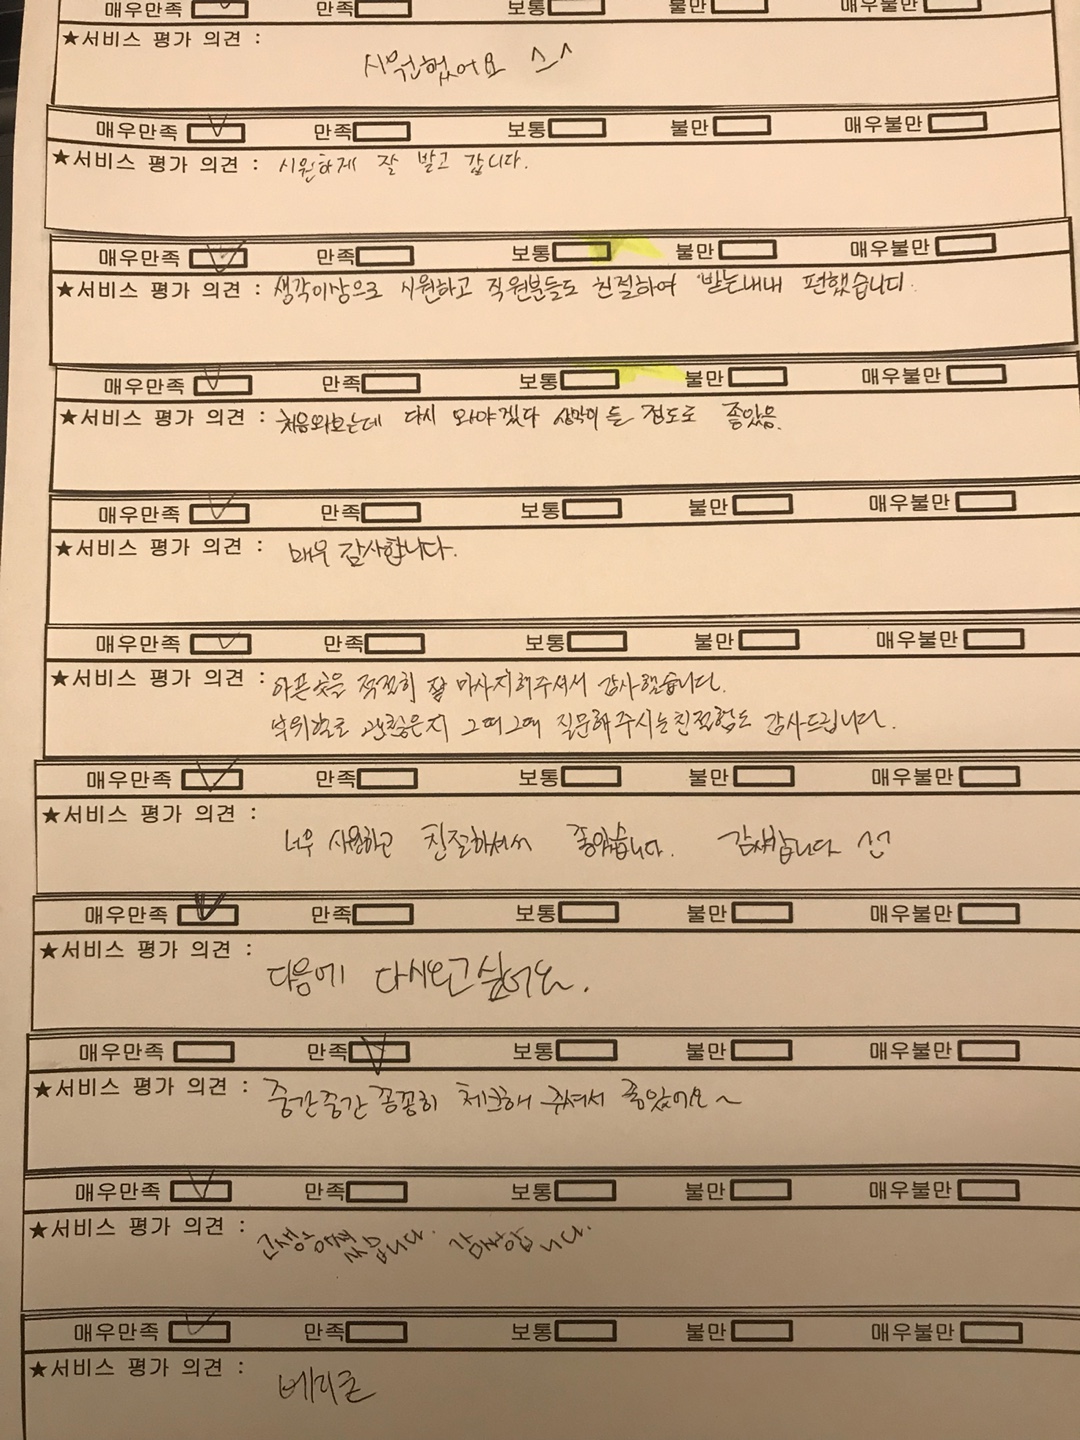 매우만족 만족 보통 불만 매우불만
★서비스 평가 의견 :
시원했어요 ^^
매우만족 만족 보통 불만 매우불만
★서비스 평가 의견 : 시원하게 잘 받고 갑니다.
매우만족 만족 보통 불만 매우불만
★서비스 평가 의견 : 생각이상으로 시원하고 직원분들도 친절하여 받는내내 편했습니다.
매우만족 만족 보통 불만 매우불만
★서비스 평가 의견 : 처음와보는데 다시 와야겠다 생각이 든 정도로 좋았음.
매우만족 만족 보통 불만 매우불만
★서비스 평가 의견 : 매우 감사합니다.
매우만족 만족 보통 불만 매우불만
★서비스 평가 의견 : 아픈곳을 적절히 잘 마사지해주셔서 감사했습니다.
부위별로 괜찮은지 그때그때 질문해주시는친절함도 감사드립니다.
매우만족 만족 보통 불만 매우불만
★서비스 평가 의견 :
너무 시원하고 친절하셔서 좋았습니다. 감사합니다 ^^
매우만족 만족 보통 불만 매우불만
★서비스 평가 의견 :
다음에 다시오고싶어요.
매우만족 만족 보통 불만 매우불만
★서비스 평가 의견 : 중간중간 꼼꼼히 체크해 주셔서 좋았어요~
매우만족 만족 보통 불만 매우불만
★서비스 평가 의견 :
고생하셨습니다. 감사합니다.
매우만족 만족 보통 불만 매우불만
★서비스 평가 의견 :
베리굳